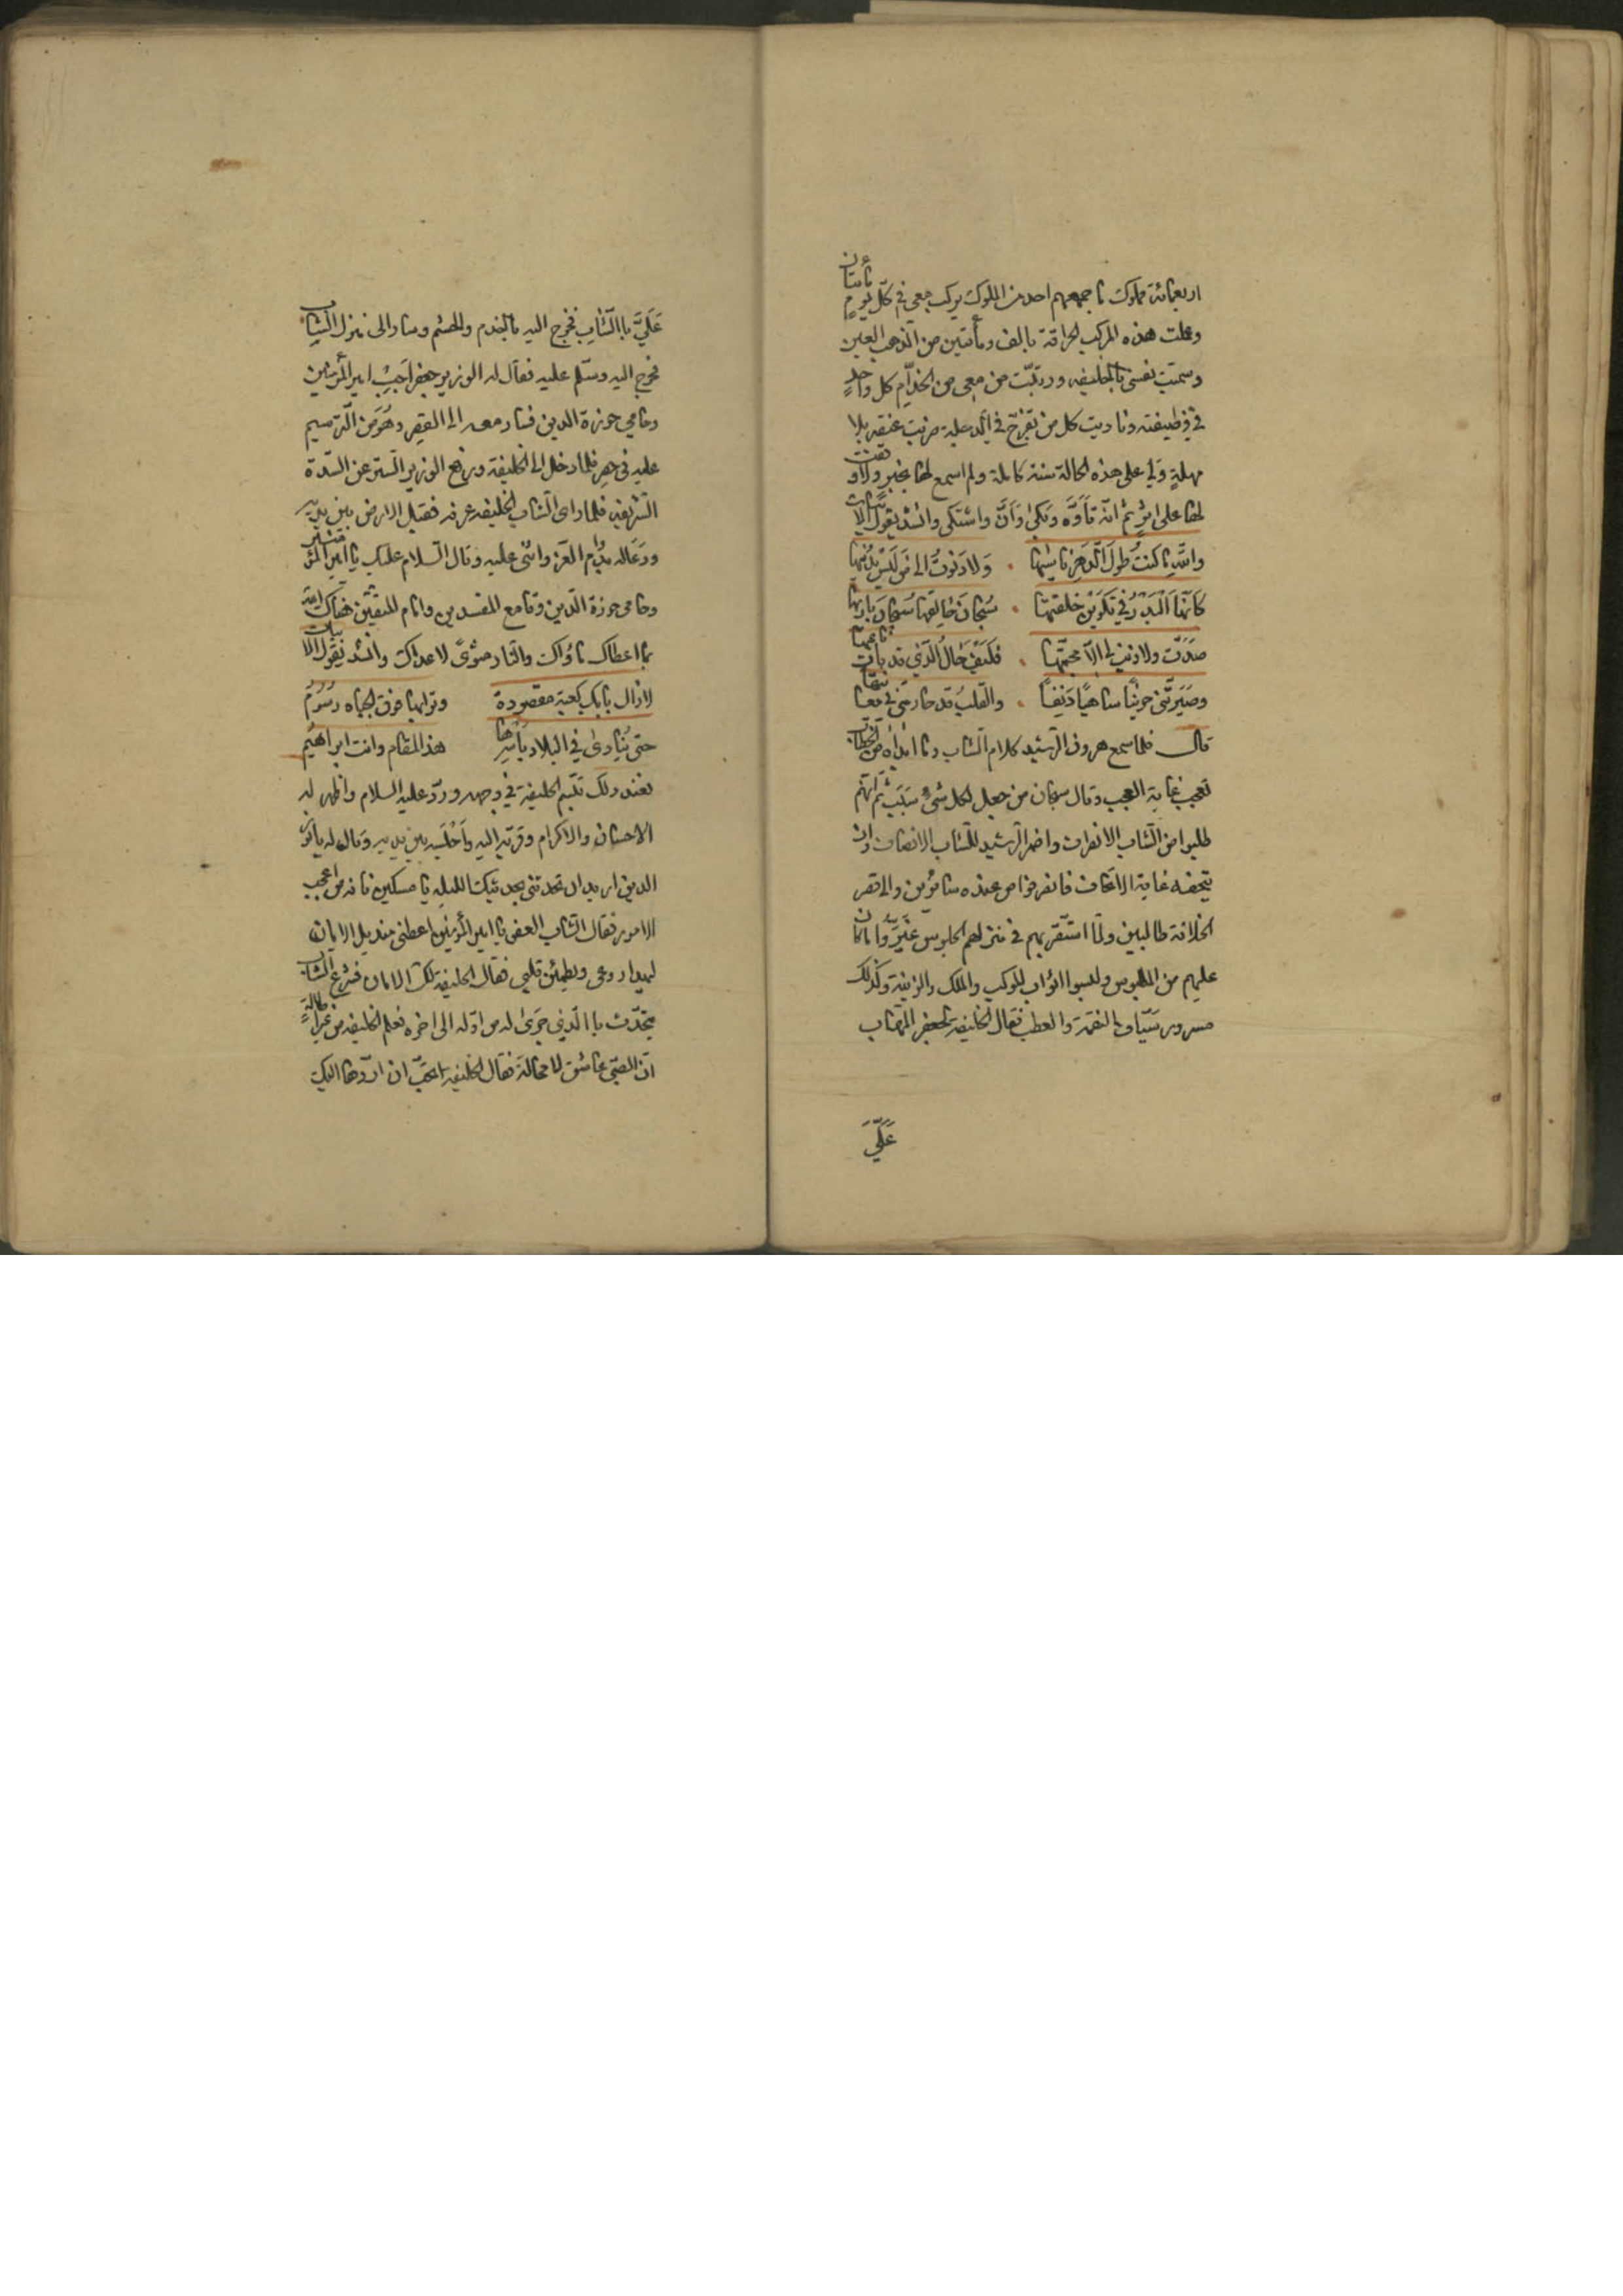 اربعمائة مملوك ما جمعهم احد من الملوك يركب معي في كل يوم مأيتان
وعملت هذه المركب الحراقة بالف ومأتين من الذهب العين
وسميت نفسي بالخليفه ورتبت من معي من الخدام كل واحد
في وظيفته وناديت كل من تفرج في الدجلة ضربت عنقه بلا
مهلة ولي على هذه الحالة سنة كاملة ولم اسمع لها بخبر ولا وقفت
لها على اثر ثم انه تأوه وبكى وأن واشتكى وانشد يقول الابيات
والله ما كنت طول الدهر ناسيها ۰ ولا دنوت الى من ليس يدنيها
كانها البدر في تكوين خلقتها ۰ سبحان خالقها سبحان باريها
صدت ولا ذنب لي الا محبتها ۰ فكيف حال الذي قد بات ناعيها
وصيرتني حزينا ساهيا دنفا ۰ والقلب قد حار مني في معانيها
قال فلما سمع هرون الرشيد كلام الشاب وما ابداه من الخطاب
تعجب غاية العجب وقال سبحان من جعل لكل شئ سبب ثم انهم
طلبوا من الشاب الانصراف واضمر الرشيد للشاب الانصاف وان
يتحفه غاية الاتحاف فانصرفوا من عنده سائرين والى قصر
الخلافة طالبين ولما استقر بهم في منزلهم الجلوس غيروا ما كان
عليهم من الملبوس ولبسوا اثواب الموكب والملك والزينة وكذلك
مسرور سياف النقمة والعطب فقال الخليفة لجعفر المهاب
عَلَيَّ
عَلَيَّ باالشاب فخرج اليه بالخدم والحشم وسار الى منزل الشاب
فخرج اليه وسلم عليه فقال له الوزير جعفر اجب امير المؤمنين
وحامي حوزة الدين فسار معه الى القصر وهو من الترسيم
عليه في حصر فلما دخل الى الخليفة ورفع الوزير الستر عن السدة
الشريفه فلما راى الشاب الخليفه عرفه فقبل الارض بين يديه
ودعا له بدوام العز واثنى عليه وقال السلام عليك يا امير المؤمنين
وحامى حوزة الدين وقامع المفسدين وامام المتقين هناك الله
بما اعطاك مأواك والنار مثوى لاعداك وانشد يقول الابيات
لازال بابك كعبة مقصودة وترابها فوق الجباه رسوم
حتى ينادى في البلاد باسرها هذا المقام وانت ابراهيم
فعند ذلك تبسم الخليفة في وجهه ورد عليه السلام واظهر له
الاحسان والاكرام وقربه اليه واجلسه بين يديه وقال له يا نور
الدين اريد ان تحدثني بحديثك الليله يا مسكين فانه من اعجب
الامور فقال الشاب العفو يا امير المؤمنين اعطني منديل الامان
ليهدا روعي ويطمئن قلبي فقال الخليفة لك الامان فشرع الشاب
يتحدث باالذي جرى له من اوله الى اخره فعلم الخليفه من غير اطالة
ان الصبي عاشق لا محالة فقال الخليفة اتحب ان اردها اليك